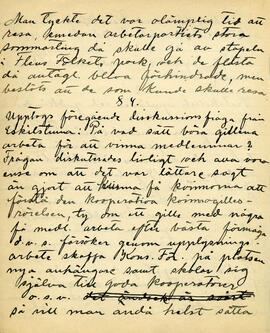 Man tyckte det var olämplig tid att
resa, arbetarpartiets stora
sommarting då skulle gå av stapeln
i Folkets park, och de flesta
då antagl. bleva förhindrade, men
beslöts att de som kunde skulle resa
§ 4.
Upptogs föregående diskussions fråga från
Eskilstuna: På vad sätt böra gillena
arbeta för att vinna medlemmar?
Frågan diskuterades livligt och alla voro
ense om att det var lättare sagt
än gjort att kunna få kvinnorna att
förstå den kooperativa kvinnogilles-
rörelsen, ty om ett gille med några
få medl. arbeta efter bästa förmåga
d.v.s. försöker genom upplysnings-
arbete skaffa Kons. Fd. på platsen
nya anhängare samt skolar sig
själva till goda kooperatörer
o.s.v.
så vill man ändå helst sätta